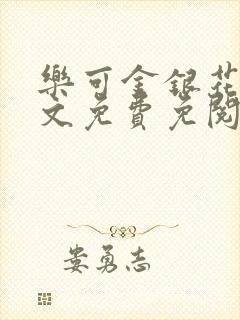 樂可金銀花
文免費免閱
娄勇志